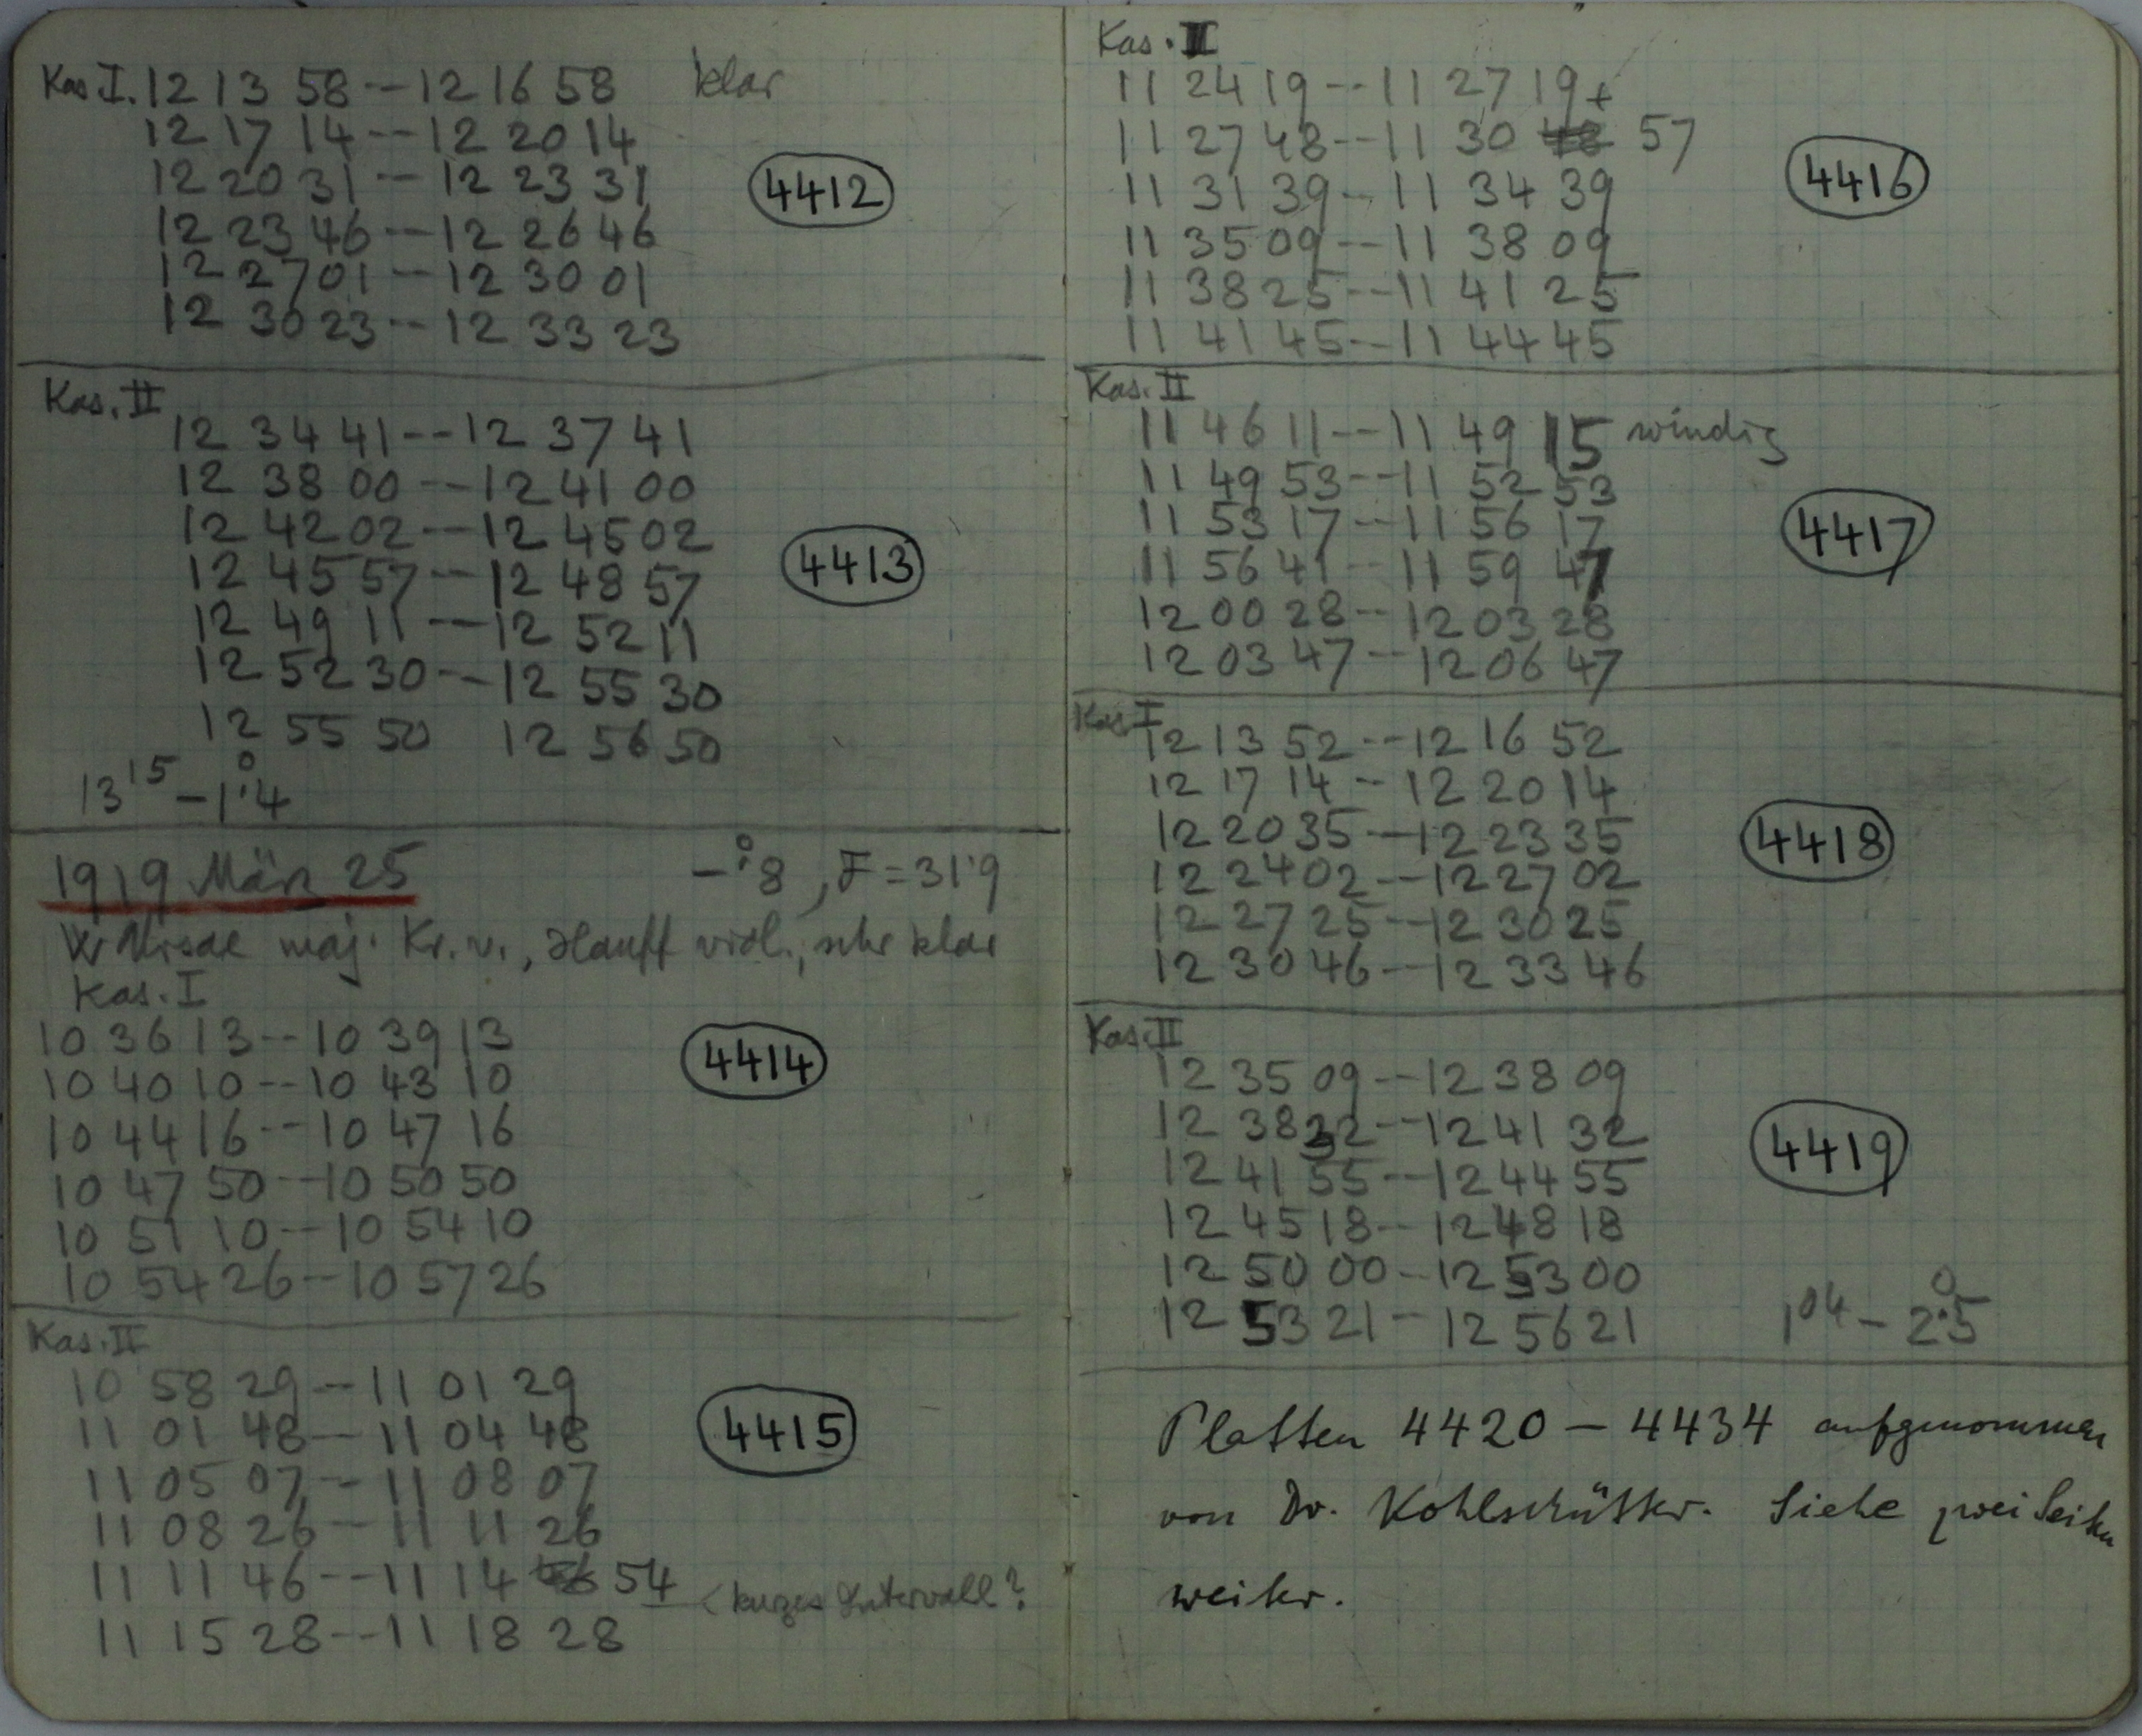 Kas I. 12 13 58 -- 12 16 58 klar
12 17 14 -- 12 20 14
12 20 31 -- 12 23 31
4412
12 23 46 -- 12 26 46
12 27 01 -- 12 30 01
12 30 23 -- 12 33 23
Kas. II
12 34 41 -- 12 37 41
12 38 00 -- 12 41 00
12 42 02 -- 12 45 02
12 45 57 -- 12 48 57
4413
12 49 11 -- 12 52 11
12 52 30 -- 12 55 30
12 55 50 12 56 50
13¹⁵ -1°.4
1919 März 25 -°.8, F = 31.9
W Ursae maj. Kr. v., Hauff viol., sehr klar
Kas. I
10 36 13 -- 10 39 13
4414
10 40 10 -- 10 43 10
10 44 16 -- 10 47 16
10 47 50 -- 10 50 50
10 51 10 -- 10 54 10
10 54 26 -- 10 57 26
Kas. II
10 58 29 -- 11 01 29
11 01 48 -- 11 04 48
4415
11 05 07 -- 11 08 07
11 08 26 -- 11 11 26
11 11 46 -- 11 14 54 < kurzes Intervall?
11 15 28 -- 11 18 28
Kas. II
11 24 19 -- 11 27 19+
11 27 48 -- 11 30 48 57
11 31 39 -- 11 34 39
4416
11 35 09 -- 11 38 09
11 38 25 -- 11 41 25
11 41 45 -- 11 44 45
Kas. II
11 46 11 -- 11 49 15 windig
11 49 53 -- 11 52 53
11 53 17 -- 11 56 17
4417
11 56 41 -- 11 59 47
12 00 28 -- 12 03 28
12 03 47 -- 12 06 47
Kas. I
12 13 52 -- 12 16 52
12 17 14 -- 12 20 14
12 20 35 -- 12 23 35
4418
12 24 02 -- 12 27 02
12 27 25 -- 12 30 25
12 30 46 -- 12 33 46
Kas. II
12 35 09 -- 12 38 09
12 38 32 -- 12 41 32
4419
12 41 55 -- 12 44 55
12 45 18 -- 12 48 18
12 50 00 -- 12 53 00
12 53 21 -- 12 56 21 1⁰⁴ - 2°.5
Platten 4420 - 4434 aufgenommen
von Dr. Kohlschütter. Siehe zwei Seiten
weiter.